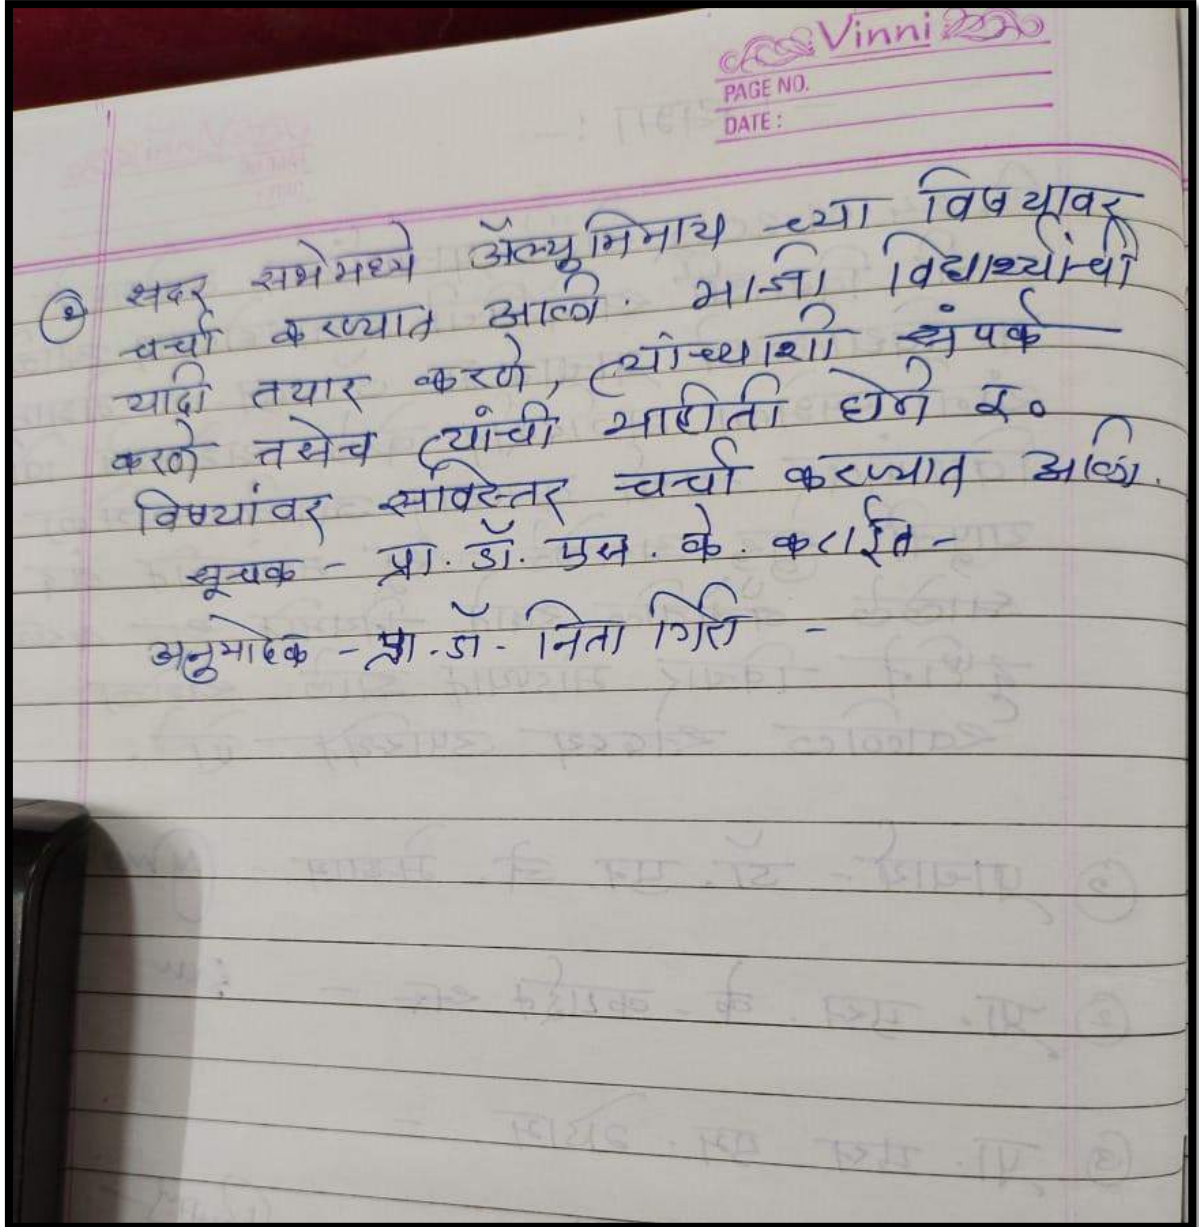 Vinni
PAGE NO.
DATE:
② सदर सभेमध्ये ॲल्युमिनाय च्या विषयावर
चर्चा करण्यात आली. माजी विद्यार्थ्यांची
यादी तयार करणे, त्यांच्याशी संपर्क
करणे तसेच त्यांची माहीती घेणे इ०
विषयांवर सविस्तर चर्चा करण्यात आली.
सूचक - प्रा. डॉ. एस. के. कटाईत -
अनुमोदक - प्रा. डॉ. निता गिरी -